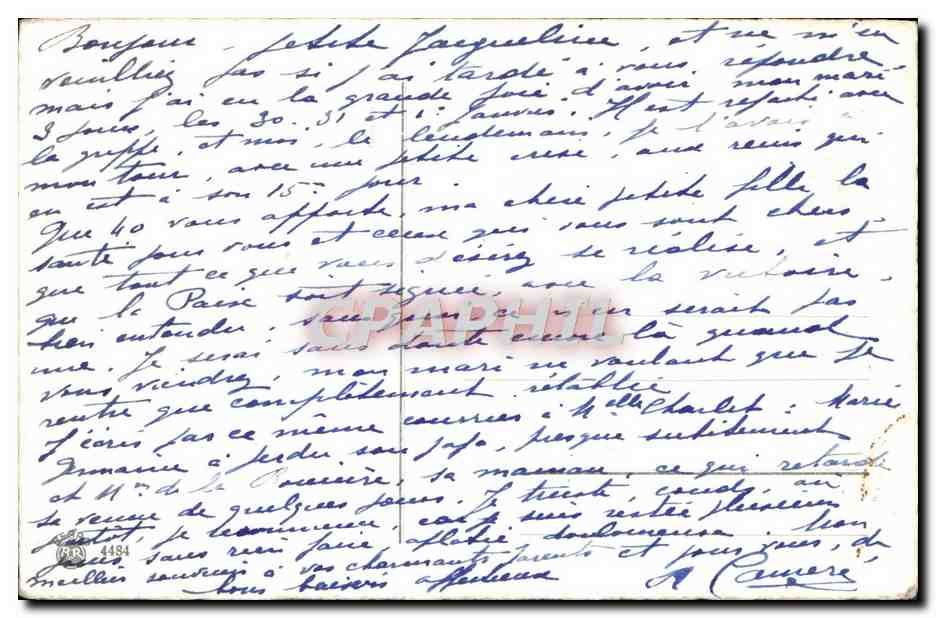 Bonjour petite Jacqueline, et ne m'en
veuilliez pas si j'ai tardé à vous répondre
mais j'ai eu la grande joie d'avoir mon mari
3 jours, les 30. 31 et 1er Janvier. Il est reparti avec
la grippe, et moi, le lendemain, je l'avais à
mon tour, avec une petite crise, aux reins qui
en est à son 15me jour.
Que 40 vous apporte, ma chère petite fille la
santé pour vous et ceux qui vous sont chers,
que tout ce que vous désirez se réalise, et
que la Paix soit signée, avec la victoire,
bien entendu, sans quoi ce n'en serait pas
une. Je serai sans doute encore là quand
vous viendrez, mon mari ne voulant que je
rentre que complètement rétablie
J'écris par ce même courrier à Melle Charlet : Marie
Germaine a perdu son papa, presque subitement
et Mme de la sa maman ce qui retarde
sa venue de quelques jours. Je tricote, couds, ou
plutôt, je recommence, car je suis restée plusieurs
jours sans rien faire douloureuse. Mon
meilleur souvenir à vos charmants parents et pour vous, de
bons baisers affectueux
A Cameré
CPAPHIL
4484